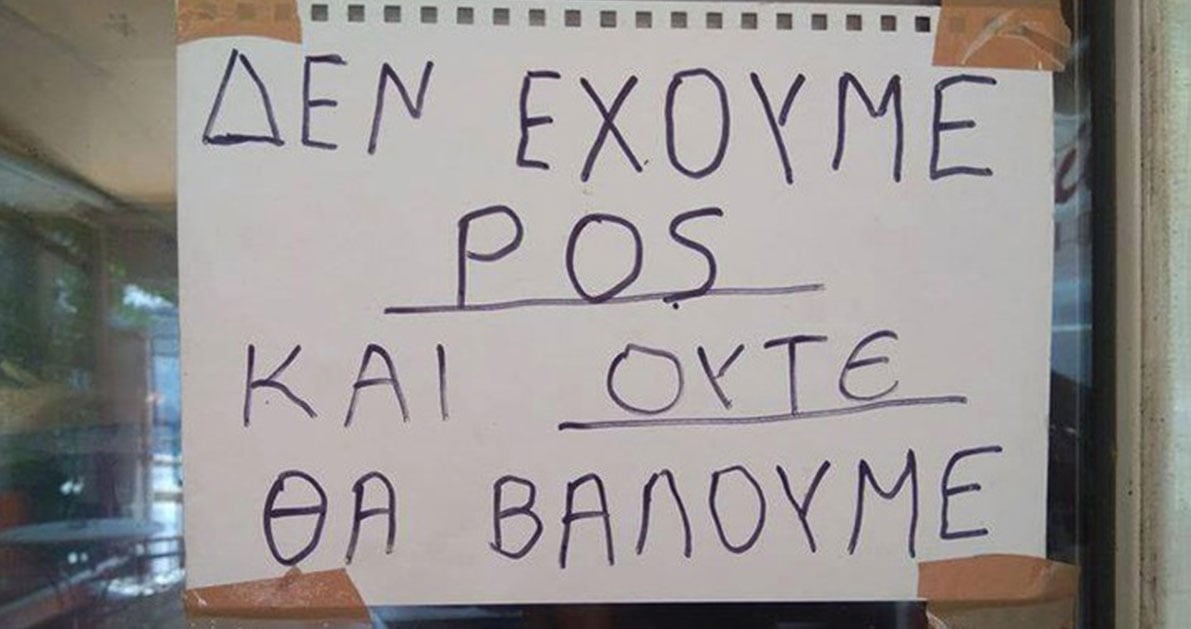 ΔΕΝ ΕΧΟΥΜΕ
POS
ΚΑΙ ΟΥΤΕ
ΘΑ ΒΑΛΟΥΜΕ